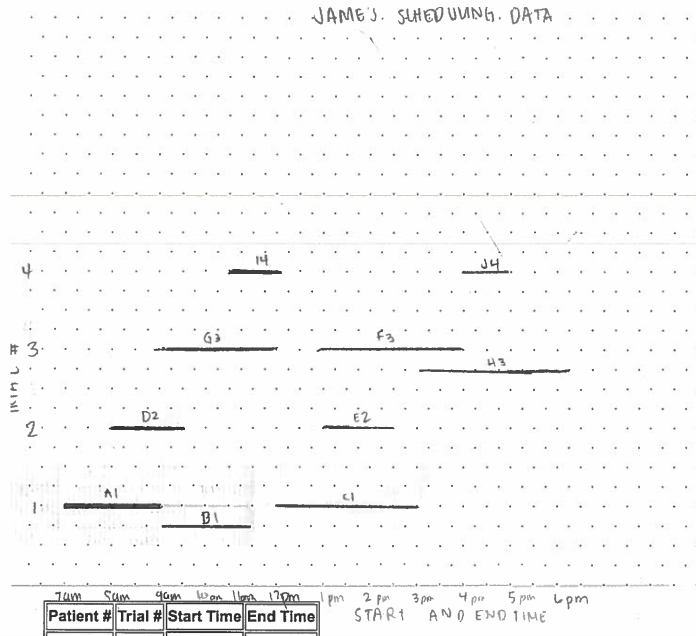 JAMES. SCHEDULING. DATA
I4
J4
4
G3
F3
TRIAL # 3
H3
D2
E2
2
A1
C1
1
B1
7am 8am 9am 10am 11am 12pm 1pm 2pm 3pm 4pm 5pm 6pm
START AND END TIME
Patient # Trial # Start Time End Time